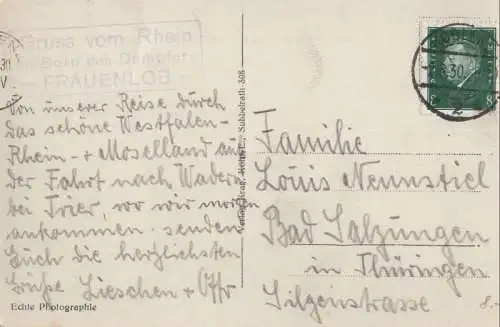 Gruss vom Rhein
Bord des Dampfers
FRAUENLOB
Von unserer Reise durch
das schöne Westfalen-
Rhein- + Moselland auf
der Fahrt nach Wadern
bei Trier, wo wir morgen
ankommen senden
Euch die herzlichsten
Grüße Lieschen + Otto
Echte Photographie
30
Familie
Louis Neunstiel
Bad Salzungen
in Thüringen
Silgenstrasse
8.-